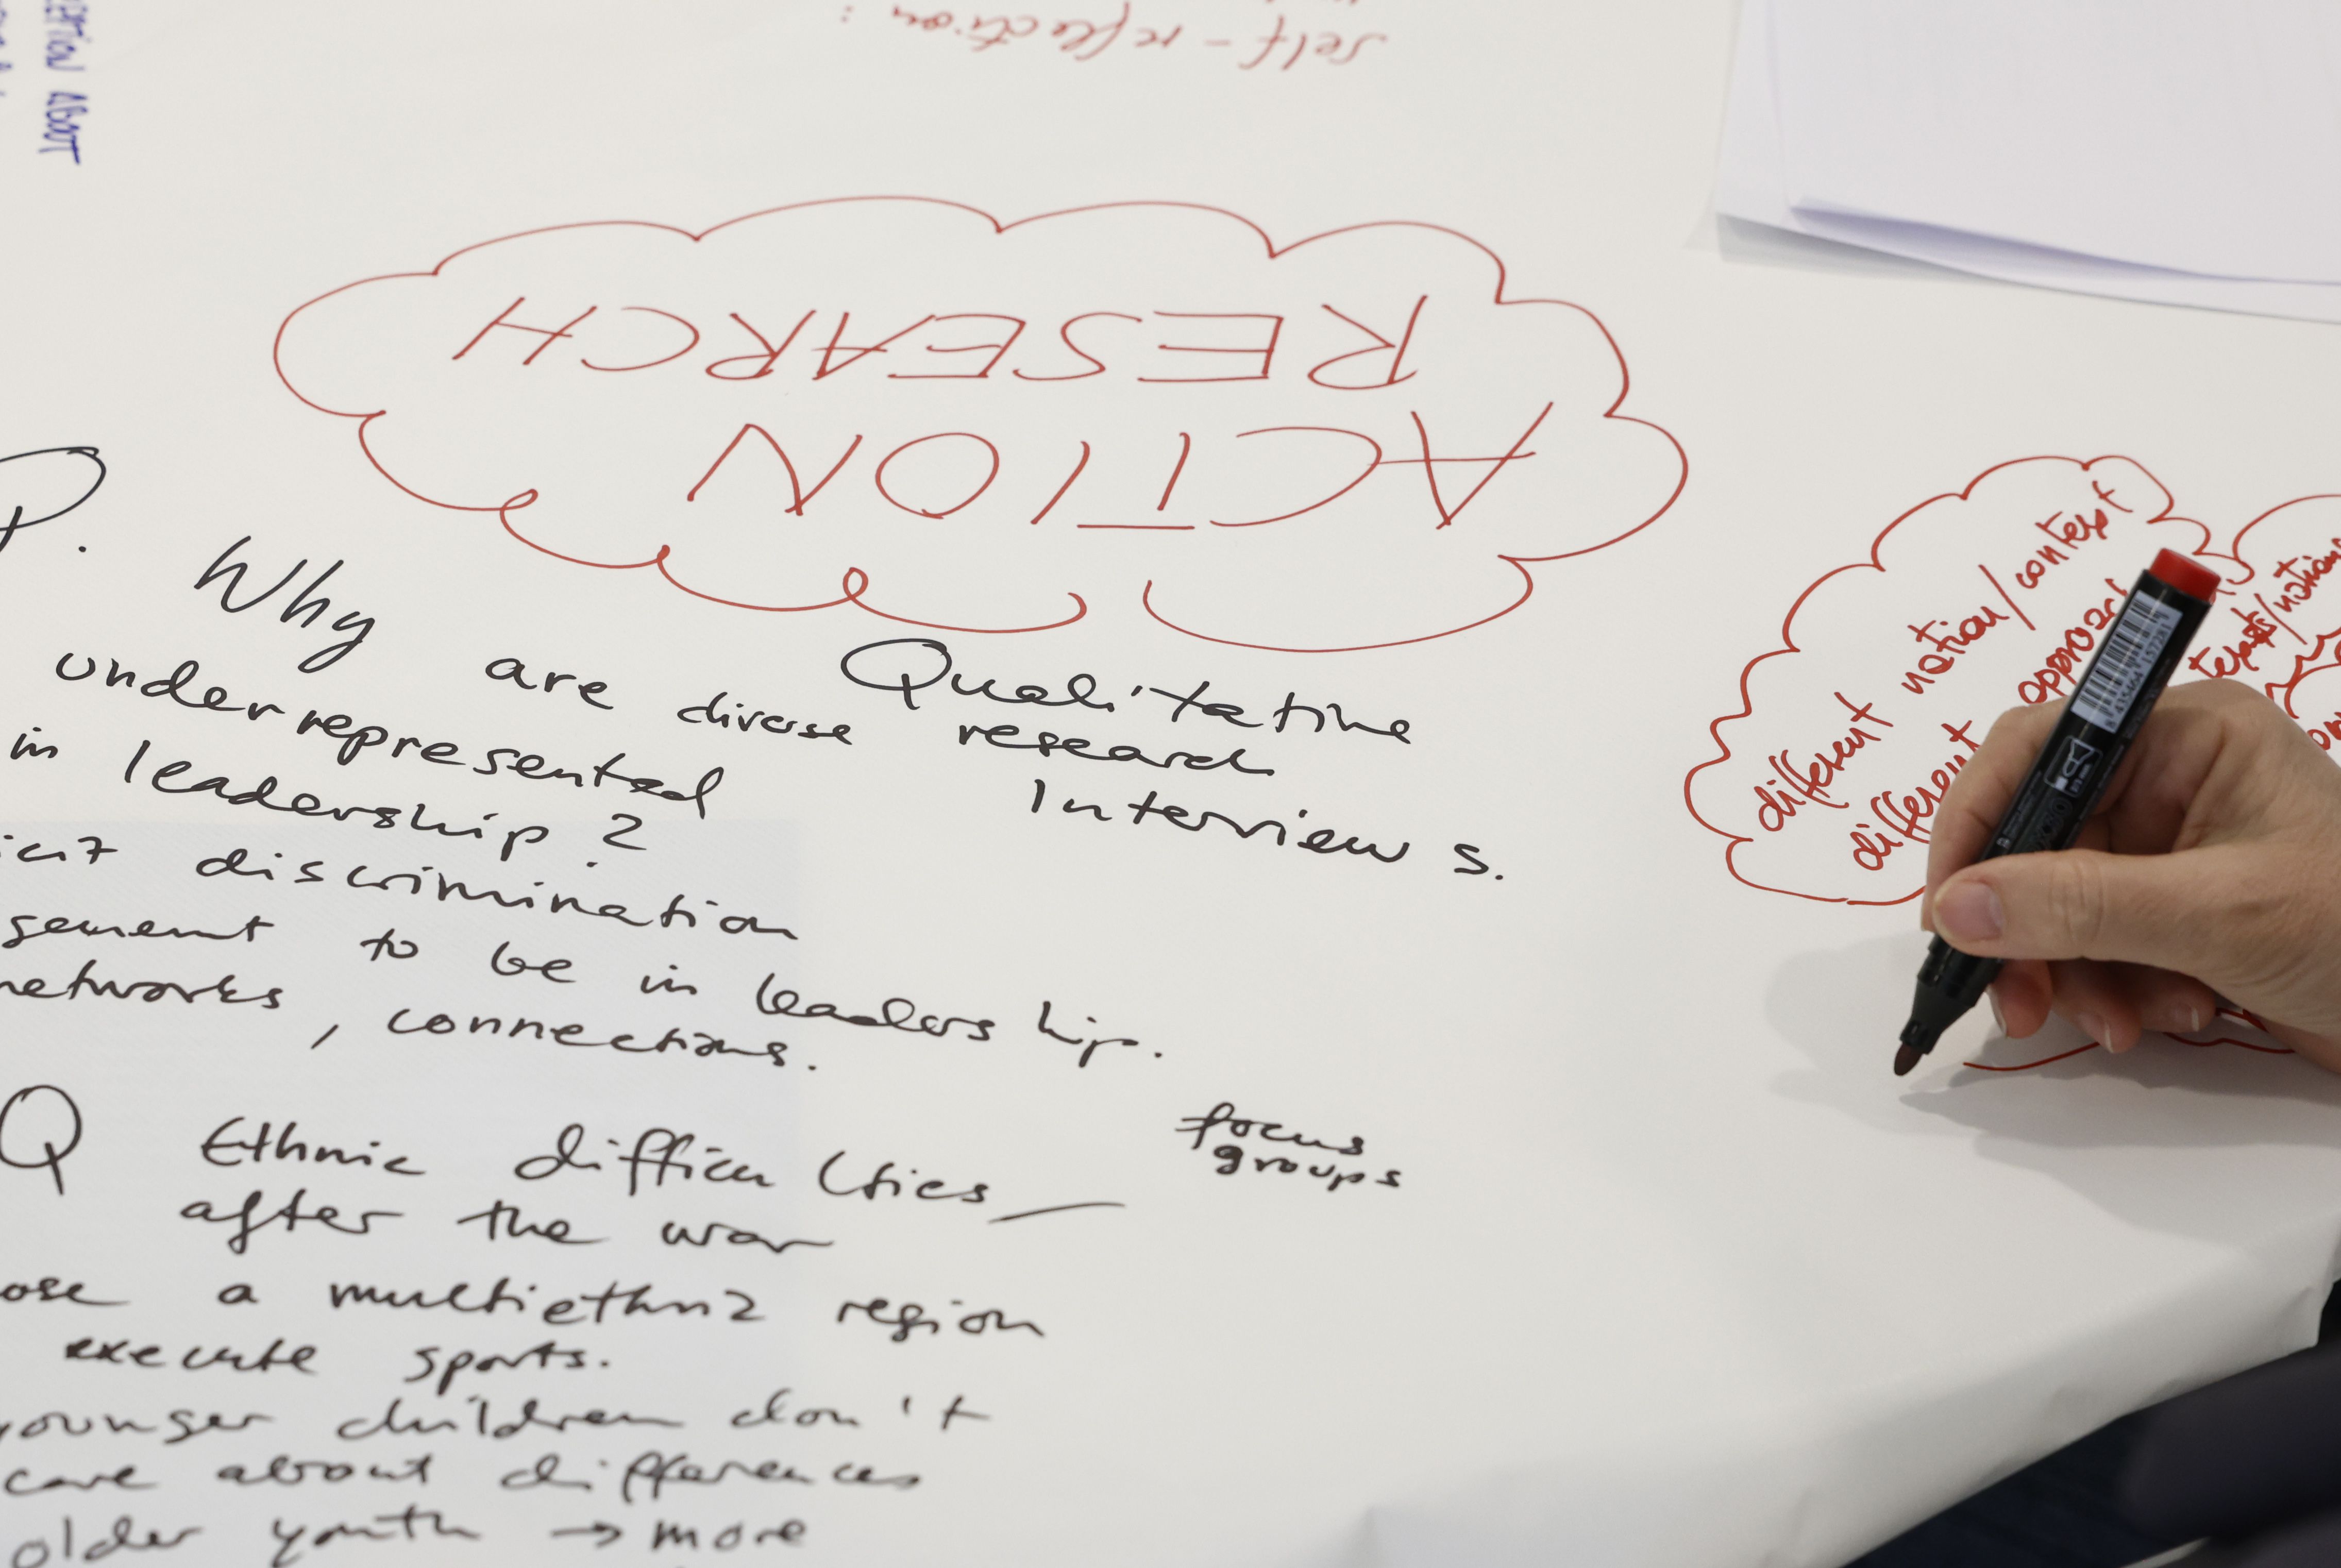 self-reflection:
ABOUT
ACTION
RESEARCH
P. Why are diverse
underrepresented
in leadership?
discrimination
to be in leadership.
networks, connections.
Qualitative
research
Interviews.
Q Ethnic difficulties
after the war
focus
groups
a multiethnic region
execute sports.
younger children don't
care about differences
older youth → more
different notion/context
different approach